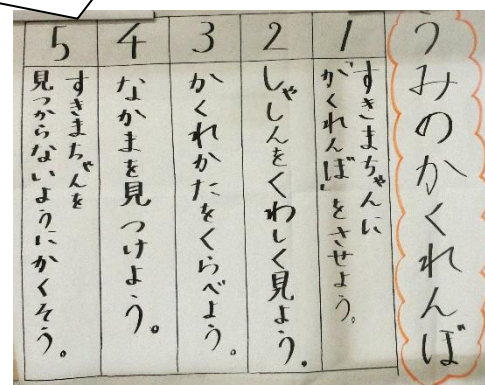 うみのかくれんぼ
1
すきまちゃんに
「かくれんぼ」をさせよう。
2
しゃしんをくわしく見よう。
3
かくれかたをくらべよう。
4
なかまを見つけよう。
5
すきまちゃんを
見つからないようにかくそう。